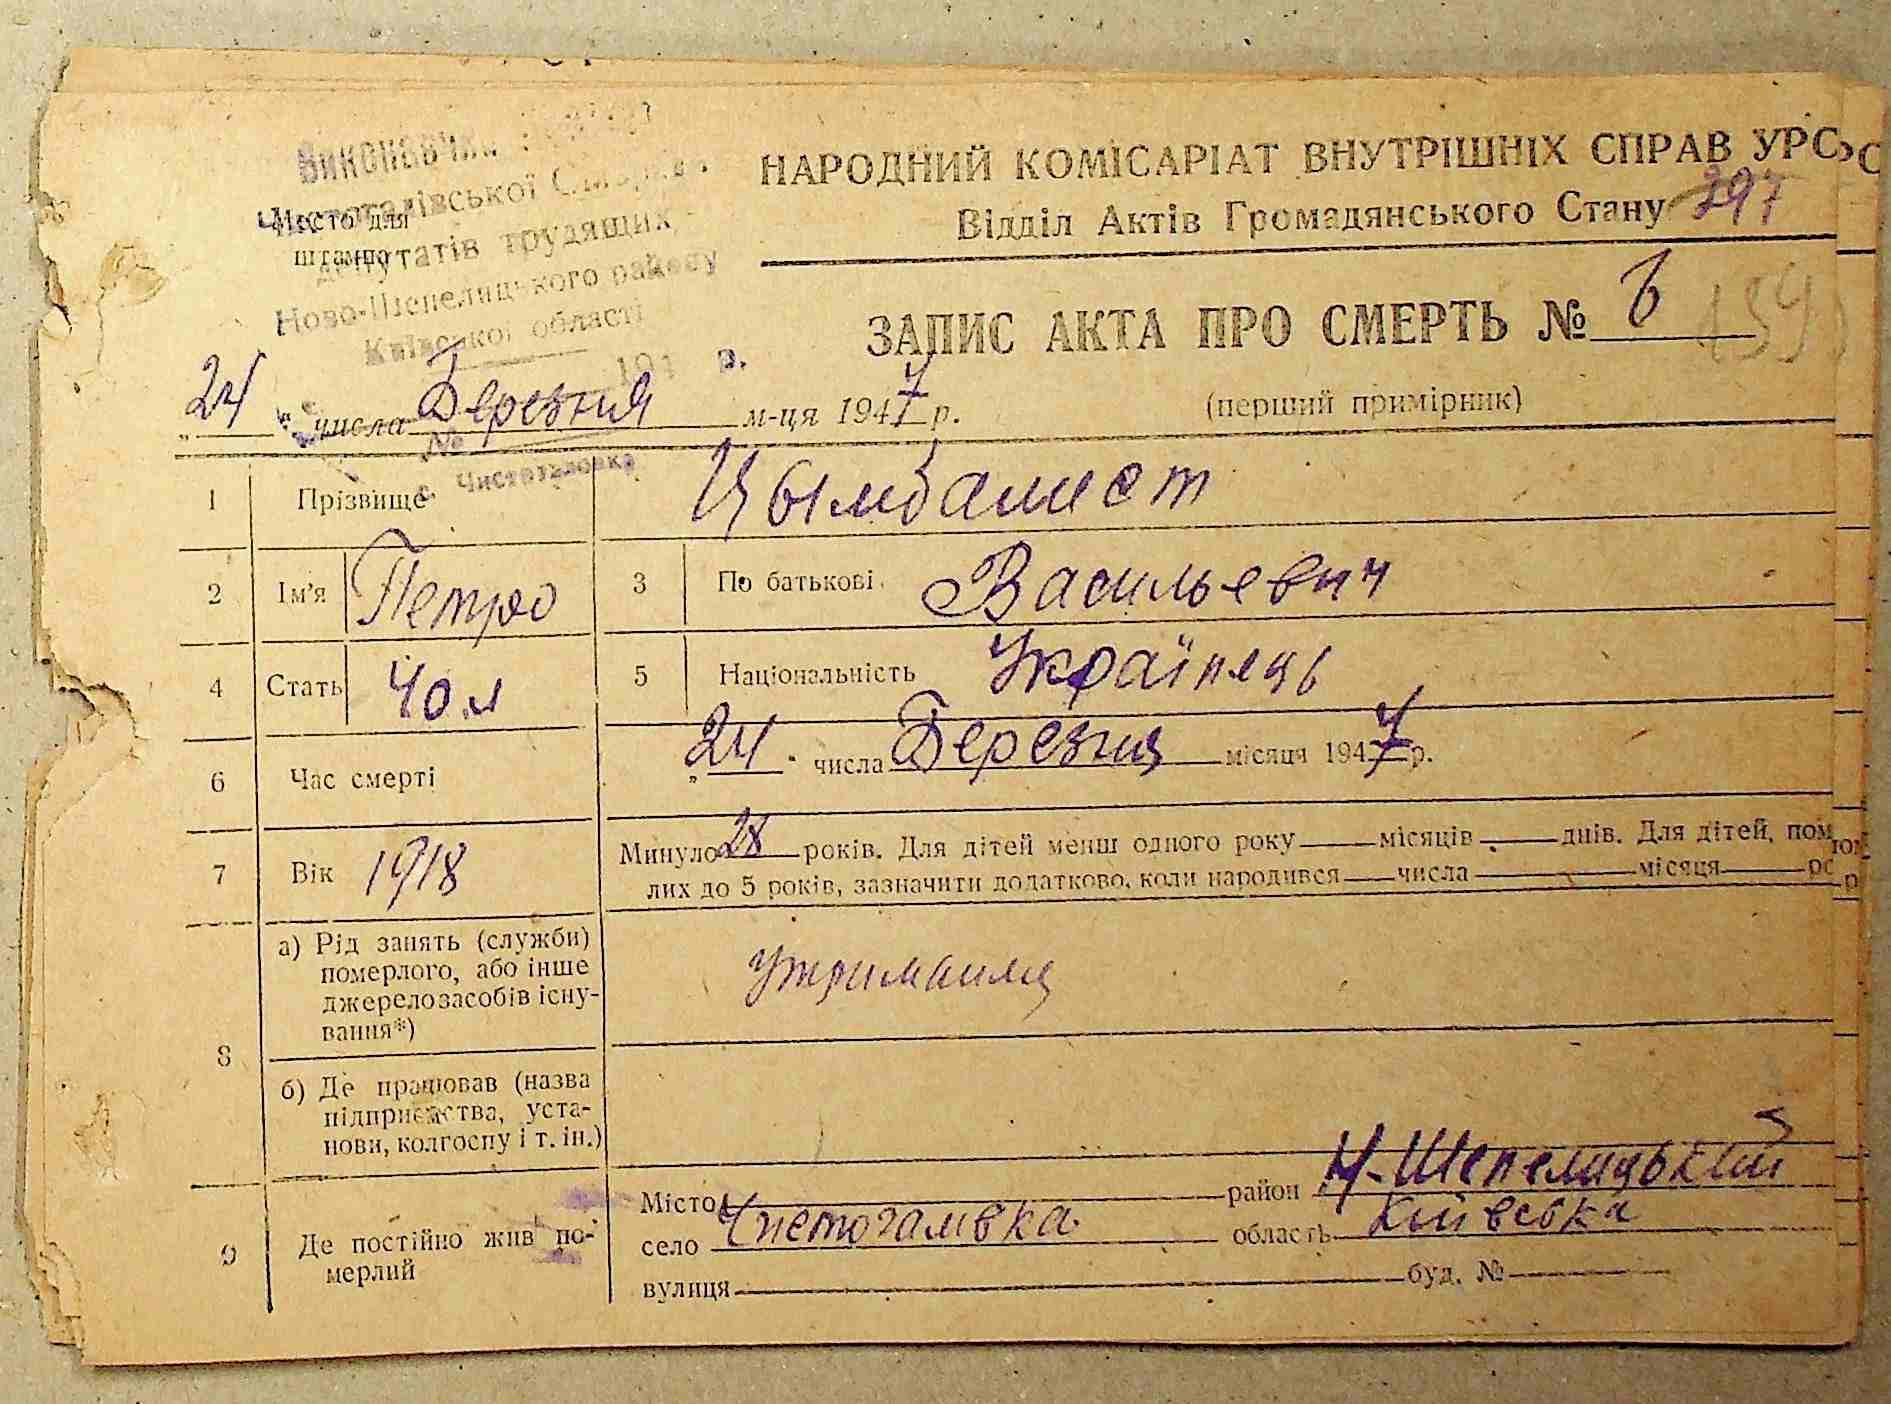 Виконавчий
Чистогалівської Сільської
Місце для
штампа
депутатів трудящих
Ново-Шепелицького району
Київської області
194 р.
№
с. Чистогаловка
НАРОДНИЙ КОМІСАРІАТ ВНУТРІШНІХ СПРАВ УРС
Відділ Актів Громадянського Стану 297
ЗАПИС АКТА ПРО СМЕРТЬ № 6 159
(перший примірник)
„24" числа Березня м-ця 1947 р.
1 Прізвище Цымбалист
2 Ім'я Петро 3 По батькові Васильевич
4 Стать Чол 5 Національність Українець
6 Час смерті „24" числа Березня місяця 1947 р.
7 Вік 1918 Минуло 28 років. Для дітей менш одного року місяців днів. Для дітей, пом
лих до 5 років, зазначити додатково, коли народився числа місяця ро
8 а) Рід занять (служби)
померлого, або інше
джерело засобів існу-
вання*)
утримання
б) Де працював (назва
підприємства, уста-
нови, колгоспу і т. ін.)
9 Де постійно жив по-
мерлий
Місто район Н-Шепелицький
село Чистогаловка область Київська
вулиця буд. №